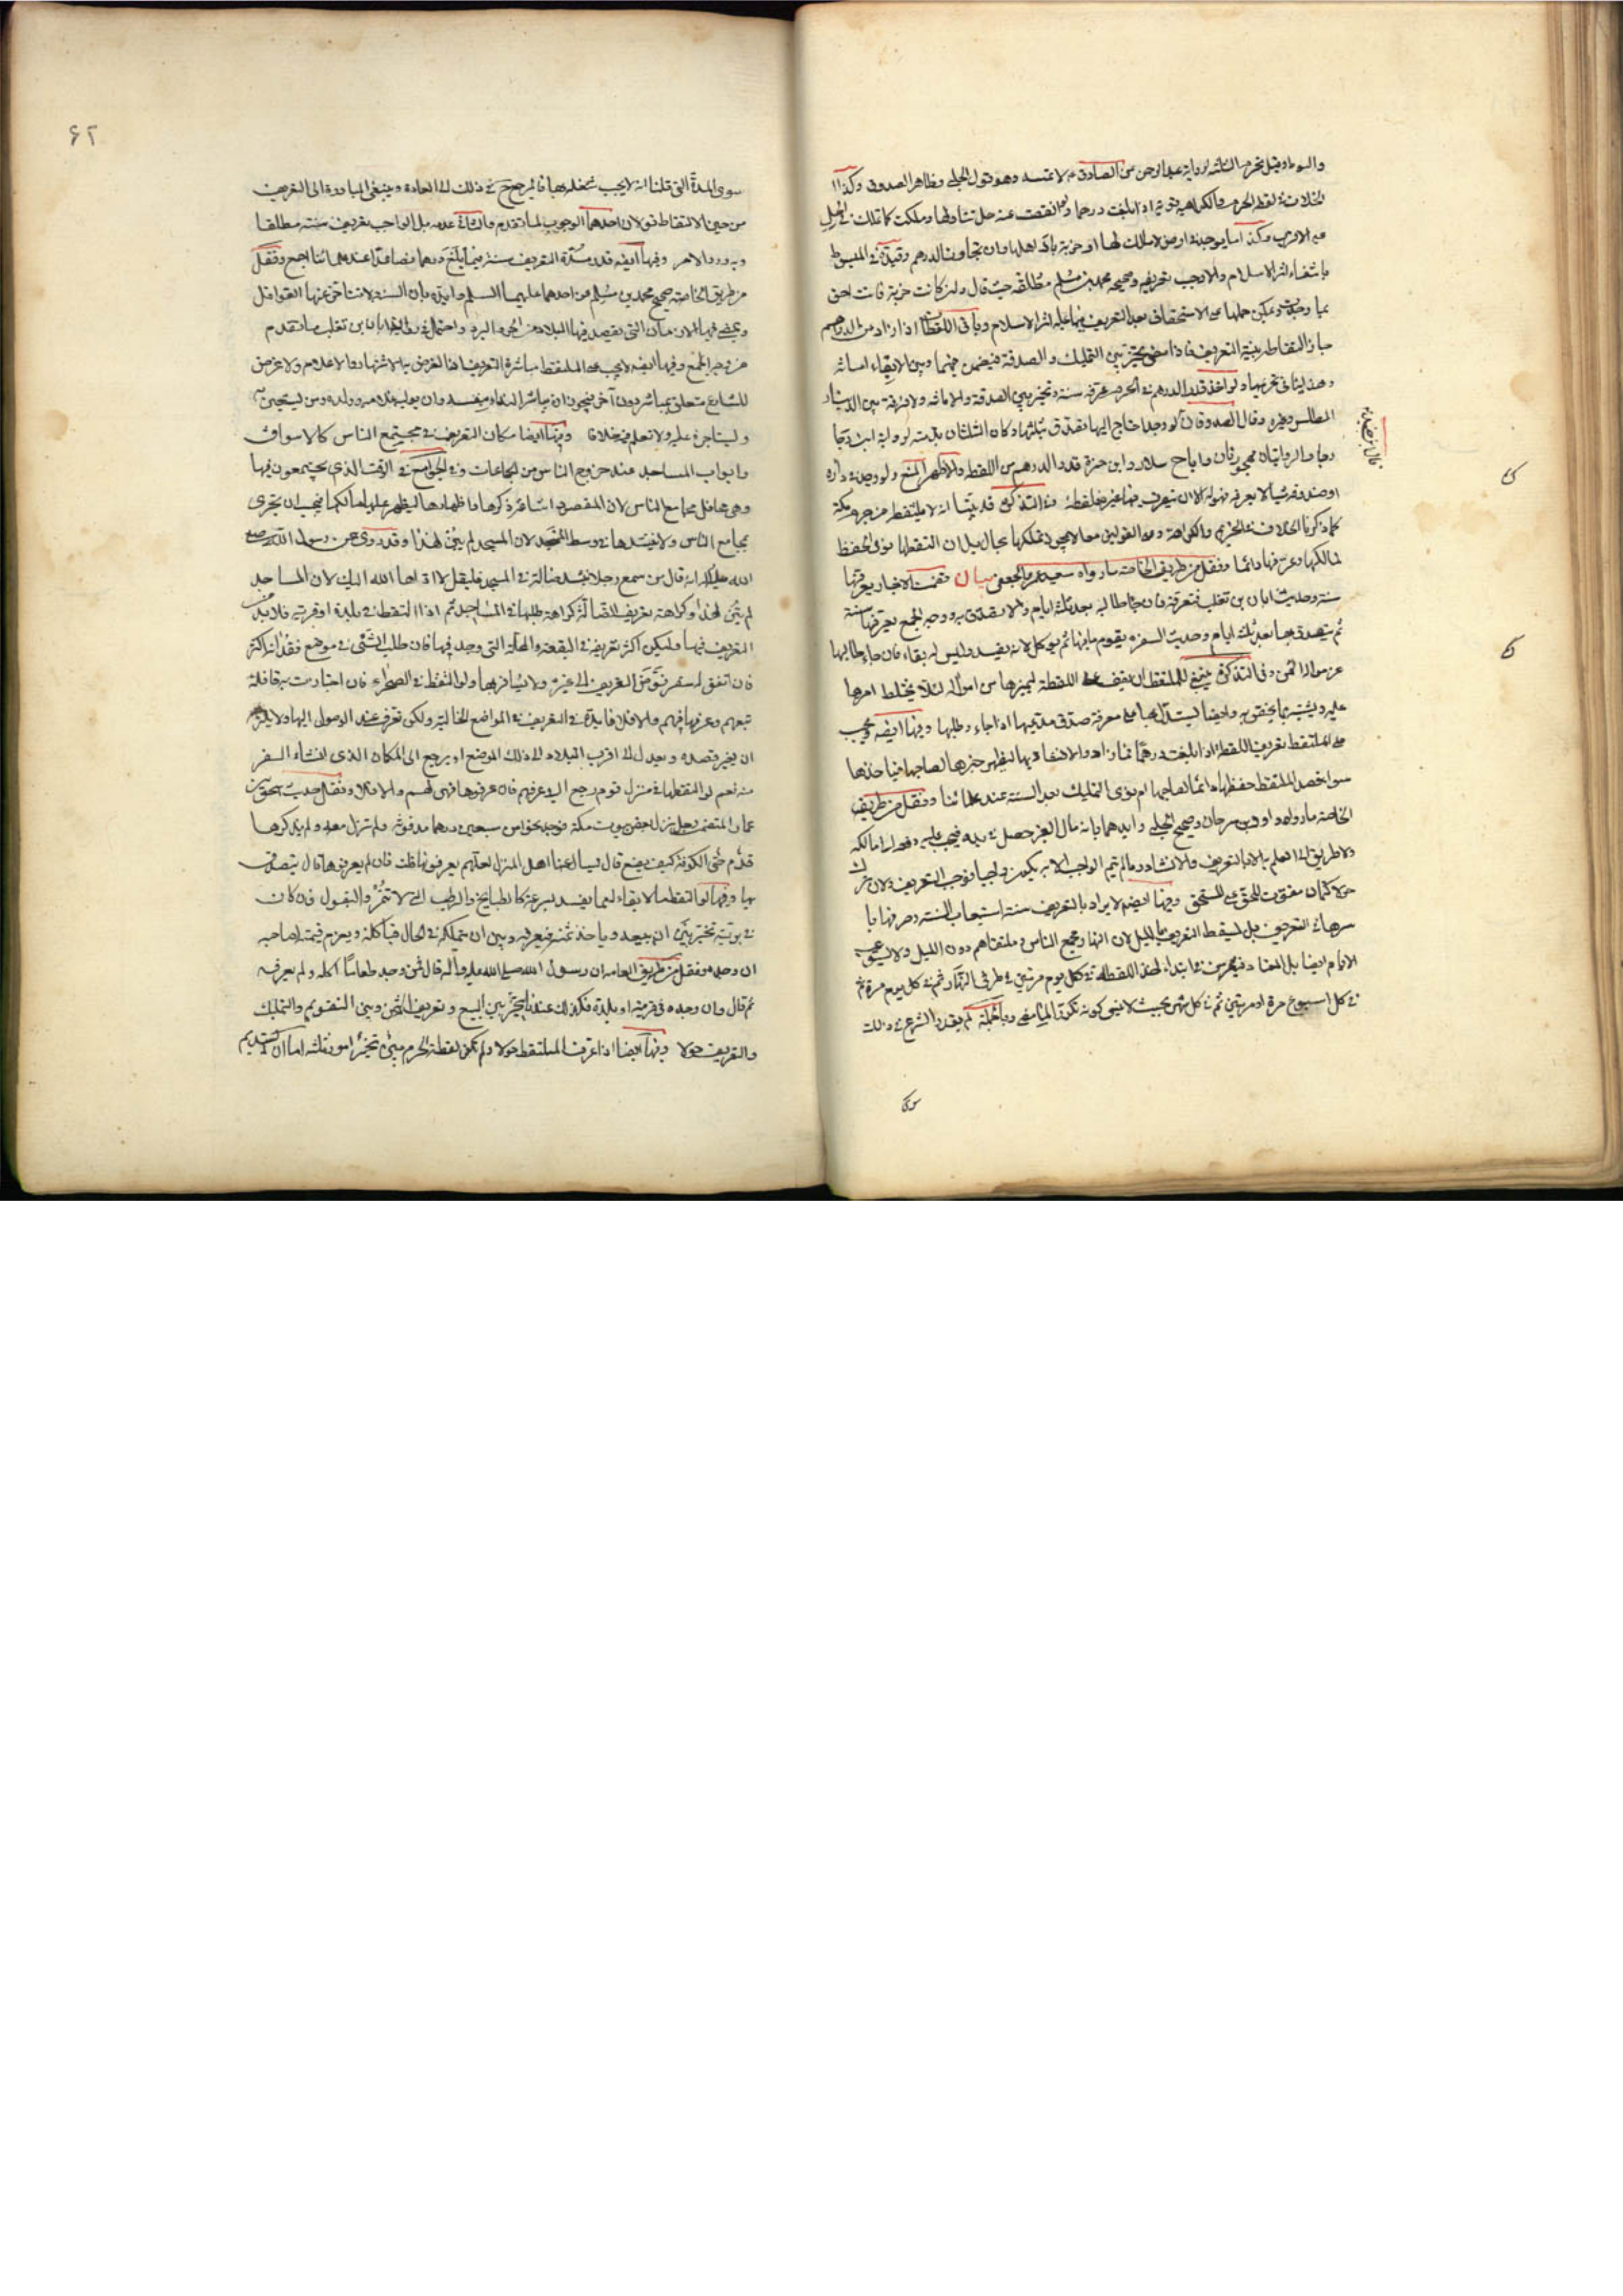 والسوط وقيل تحرم الثلثة لرواية عبد الرحمن عن الصادق ع لا تمسه وهو قول الحلبي وظاهر الصدوق وكذا
الخلاف في لقطة الحرم والكراهية قوية اذا بلغت درهما ولو نقصت عنه حل تناولها وملكت كما تملك في الحل
على الاقرب وكذا ما يوجد في ارض لا مالك لها او خربة باد اهلها وان تجاوزت الدرهم وقيده في المبسوط
بانتفاء اثر الاسلام والا وجب تعريفه وصحيحة محمد بن مسلم مطلقة حيث قال وان كانت خربة فانت احق
بما وجدت ويمكن حملها على الاستحقاق بعد التعريف فيما عليه اثر الاسلام وباقي اللقطات اذا زاد من الدرهم
جاز التقاطه بنية التعريف فاذا مضى تخير بين التمليك والصدقة فيضمن فيهما وبين الابقاء امانة
ولو اخذ قدر الدرهم في الحرم عرفه سنة وتخير بين الصدقة والامانة ولا فرق بين الدينار
المطلس وغيره وقال الصدوقان لو وجده
والروايتان مهجورتان واباح سلار وابن حمزة قدر الدرهم من اللقطة والاظهر المنع ولو وجد في داره
او صندوقه شيئا لا يعرفه فهو له الا ان يتصرف فيها غيره فلقطة في التذكرة قد بينا انه لا يلتقط من حرم مكة
كما ذكرنا الخلاف في التحريم والكراهة وعلى القولين معا لا يجوز تملكها بحال بل ان التقطها نوى الحفظ
لمالكها وعرفها دائما ونقل من طريق الخاصة ما رواه سعيد بن عمرو الجعفي بيان تضمنت الاخبار تعريفها
سنة وحديث ابان بن تغلب فتعرفه فان جاء طالبه بعد ثلثة ايام والا تصدق به ووجه الجمع تعرفها سنة
ثم يتصدق بها بعد ثلث ايام وحديث السفرة يقوم ما فيها ثم يؤكل لانه يفسد وليس له بقاء فان جاء طالبها
غرموا له الثمن وفي التذكرة ينبغي للملتقط ان يقف على اللقطة ليميزها من امواله لئلا يختلط امرها
عليه ويشتبه وايضا ليستدل بها على معرفة صدق مدعيها اذا جاء وطلبها وفيها ايضه ويجب
على الملتقط تعريف اللقطة اذا بلغت درهما فما زاد لصاحبها فيأخذها
سواء قصد الملتقط حفظها دائما لصاحبها ام نوى التمليك بعد السنة عند علمائنا ونقل من طريق
الخاصة ما رواه داود بن سرحان وصحيح الحلبي وايدهما بانه مال الغير حصل في يده فيجب عليه دفعه الى مالكه
ولا طريق الى العلم به الا بالتعريف والانشاد وما لم يتم الواجب الا به يكون واجبا فوجب التعريف ولان ترك
حولا كتمان مفوت للحق على المستحق وفيها ايضه لا يراد بالتعريف سنة استيعاب السنة وصرفها با
سرها في التعريف بل يسقط التعريف بالليل لان النهار مجمع الناس وملتقاهم دون الليل ولا يستوعب
الايام ايضا بل المعتاد فيعرف في ابتداء اخذ اللقطة في كل يوم مرتين في طرفي النهار ثم في كل يوم مرة ثم
في كل اسبوع مرة او مرتين ثم في كل شهر بحيث لا ينسى كونه تكرار الما مضى وبالجملة لم يقدر الشرع في ذلك
سوى
۶۲
سوى المدة التي قلنا انه لا يجب شغلها بها فالمرجع ح في ذلك الى العادة وينبغي المبادرة الى التعريف
من حين الالتقاط قولان احدهما الوجوب لما تقدم والثاني عدمه بل الواجب تعريف سنة مطلقا
وبه ورد الامر وفيها ايضه قدر مدة التعريف سنة فيما بلغ درهما فصاعدا عند علمائنا اجمع ونقل
من طريق الخاصة صحيح محمد بن مسلم عن احدهما عليهما السلم وايده بان السنة لا تتاخر عنها القوافل
ويمضي فيها الازمان التي تقصد فيها البلاد من الحر والبرد واحتمل في رواية ابان بن تغلب ما تقدم
من وجه الجمع وفيها ايضه لا يجب على الملتقط مباشرة التعريف اذ الغرض به الاشهار والاعلام ولا غرض
للشارع متعلق بمباشر دون آخر فيجوز ان يباشر النداء بنفسه وان يوليه غلامه وولده ومن يستعين به
ويستأجره عليه ولا نعلم فيه خلافا وفيها ايضا مكان التعريف في مجتمع الناس كالاسواق
وابواب المساجد عند خروج الناس من الجماعات وفي الجوامع في الوقت الذي يجتمعون فيها
وهي محافل مجامع الناس لان المقصود اشاعة ذكرها واظهارها ليظهر عليها مالكها فيجب ان يتحرى
مجامع الناس ولا ينشدها في وسط المسجد لان المسجد لم يبن لهذا وقد روى عن رسول الله صلى
الله عليه واله انه قال من سمع رجلا ينشد ضالة في المسجد فليقل لا اداها الله اليك لان المساجد
لم تبن لهذا وكراهة تعريف الضالة كراهة طلبها في المساجد ثم اذا التقط في بلدة او قرية فلا بد من
التعريف فيها وليكن اكثر تعريفه في البقعة والمحلة التي وجد فيها فان طلب الشئ في موضع فقدانه اكثر
فان اتفق له سفر فوض التعريف الى غيره ولا يسافر بها ولو التقط في الصحراء فان اجتازت به قافلة
تبعهم وعرفها فيهم والا فلا فايدة في التعريف في المواضع الخالية ولكن تعرف عند الوصول اليها ولا يلزمه
ان يغير قصده ويعدل الى اقرب البلاد الى ذلك الموضع او يرجع الى المكان الذي انشاء السفر
منه نعم لو التقطها في منزل قوم رجع اليه وعرفهم فان عرفوها فهي لهم والا فلا ونقل حديث اسحق بن
عمار المتضمن رجل نزل بعض بيوت مكة فوجد نحوا من سبعين درهما مدفونة فلم تزل معه ولم يذكرها
قدم حتى الكوفة كيف يصنع قال يسال عنها اهل المنزل لعلهم يعرفونها قلت فان لم يعرفوها قال يتصدق
بها وفيها لو التقط ما لا بقاء له مما يفسد بسرعة كالطبايخ والرطب الذي لا تتمر والبقول فان كان
في برية تخير بين ان يبيعه وياخذ ثمنه فيعرفه وبين ان يتملكه في الحال فياكله ويغرم قيمته لصاحبه
ان وجده ونقل من طريق العامة ان رسول الله صلى الله عليه وآله قال من وجد طعاما اكله ولم يعرفه
ثم قال وان وجده في قرية او بلدة فكذلك عندنا يتخير بين البيع وتعريف الثمن وبين التقويم والتملك
والتعريف حولا وفيها ايضا اذا عرف الملتقط حولا ولم تكن لقطة الحرم تخير امور ثلثة اما ان يستديم